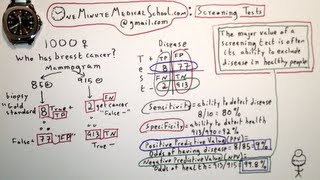 One Minute Medical School.com: Screening Tests
@gmail.com
1000 ♀
Who has breast cancer?
Mammogram
85 ⊕
915 ⊖
biopsy
"Gold
standard"
8 True +
TP
2 get cancer
False -
FN
False +
77 FP
913 TN
True -
Disease
+ -
T
e
s
t
+ TP FP
8 77
- FN TN
2 913
The major value of
a screening test is often
its ability to exclude
disease in healthy people
Sensitivity = ability to detect disease
8/10 = 80%
Specificity = ability to detect health
913/990 = 92%
Positive Predictive Value (PPV) =
Odds at having disease = 8/85 = 9%
Negative Predictive Value (NPV) =
Odds at health = 913/915 = 99.8%